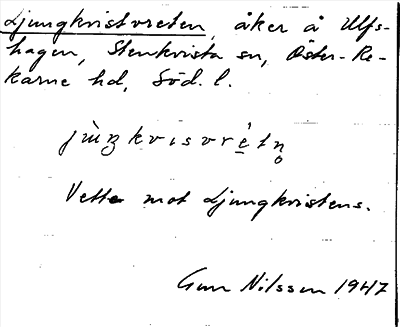 Ljungkvistvreten, åker å Ulfs-
hagen, Stenkvista sn, Öster-Re-
karne hd, Söd. l.
jùŋkvisvrètn̥
Vette mot Ljungkvistens.
Gun Nilsson 1947